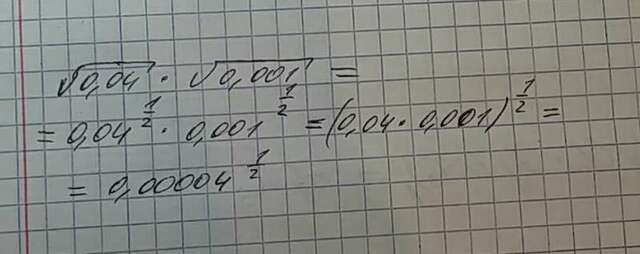 √0,04 · √0,001 =
= 0,04^(1/2) · 0,001^(1/2) = (0,04 · 0,001)^(1/2) =
= 0,00004^(1/2)